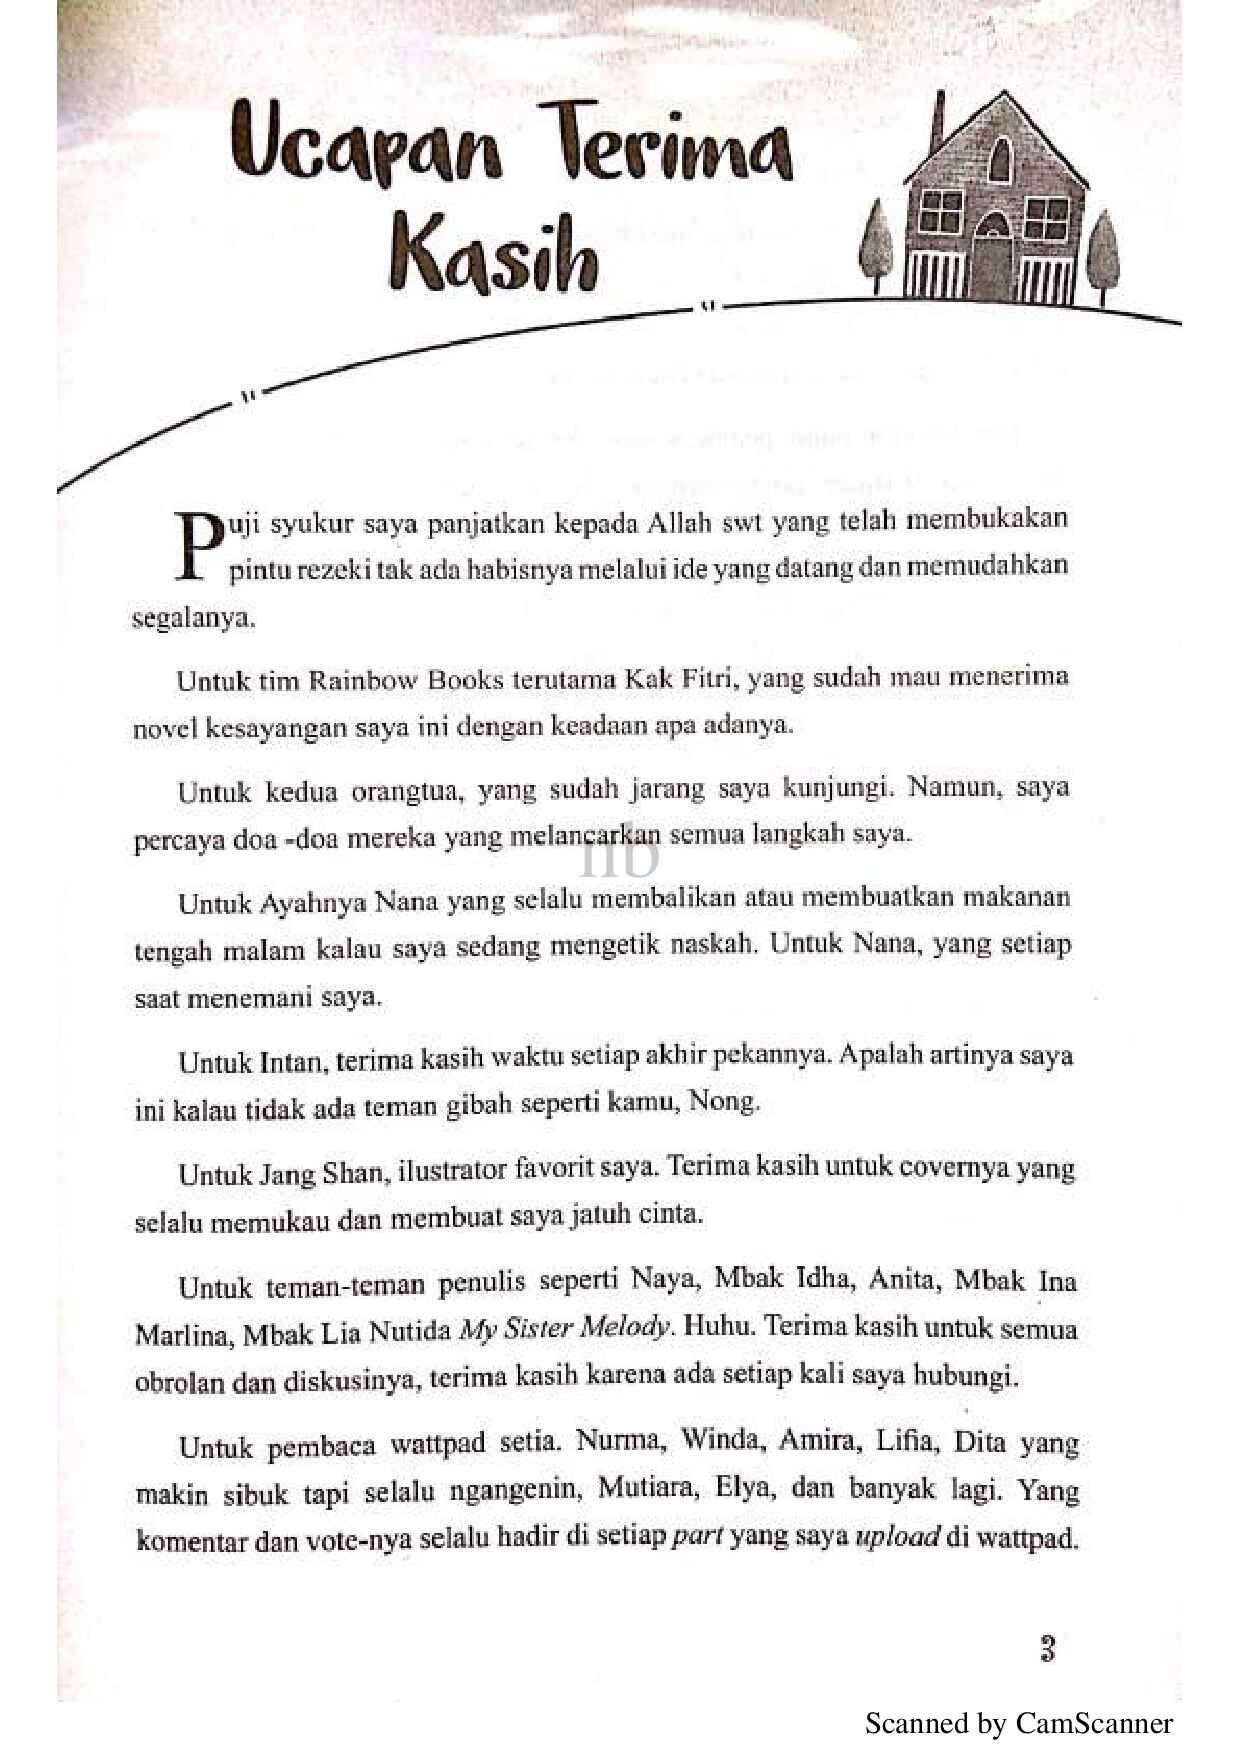 Ucapan Terima
Kasih
Puji syukur saya panjatkan kepada Allah swt yang telah membukakan
pintu rezeki tak ada habisnya melalui ide yang datang dan memudahkan
segalanya.
Untuk tim Rainbow Books terutama Kak Fitri, yang sudah mau menerima
novel kesayangan saya ini dengan keadaan apa adanya.
Untuk kedua orangtua, yang sudah jarang saya kunjungi. Namun, saya
percaya doa -doa mereka yang melancarkan semua langkah saya.
Untuk Ayahnya Nana yang selalu membalikan atau membuatkan makanan
tengah malam kalau saya sedang mengetik naskah. Untuk Nana, yang setiap
saat menemani saya.
Untuk Intan, terima kasih waktu setiap akhir pekannya. Apalah artinya saya
ini kalau tidak ada teman gibah seperti kamu, Nong.
Untuk Jang Shan, ilustrator favorit saya. Terima kasih untuk covernya yang
selalu memukau dan membuat saya jatuh cinta.
Untuk teman-teman penulis seperti Naya, Mbak Idha, Anita, Mbak Ina
Marlina, Mbak Lia Nutida My Sister Melody. Huhu. Terima kasih untuk semua
obrolan dan diskusinya, terima kasih karena ada setiap kali saya hubungi.
Untuk pembaca wattpad setia. Nurma, Winda, Amira, Lifia, Dita yang
makin sibuk tapi selalu ngangenin, Mutiara, Elya, dan banyak lagi. Yang
komentar dan vote-nya selalu hadir di setiap part yang saya upload di wattpad.
3
Scanned by CamScanner